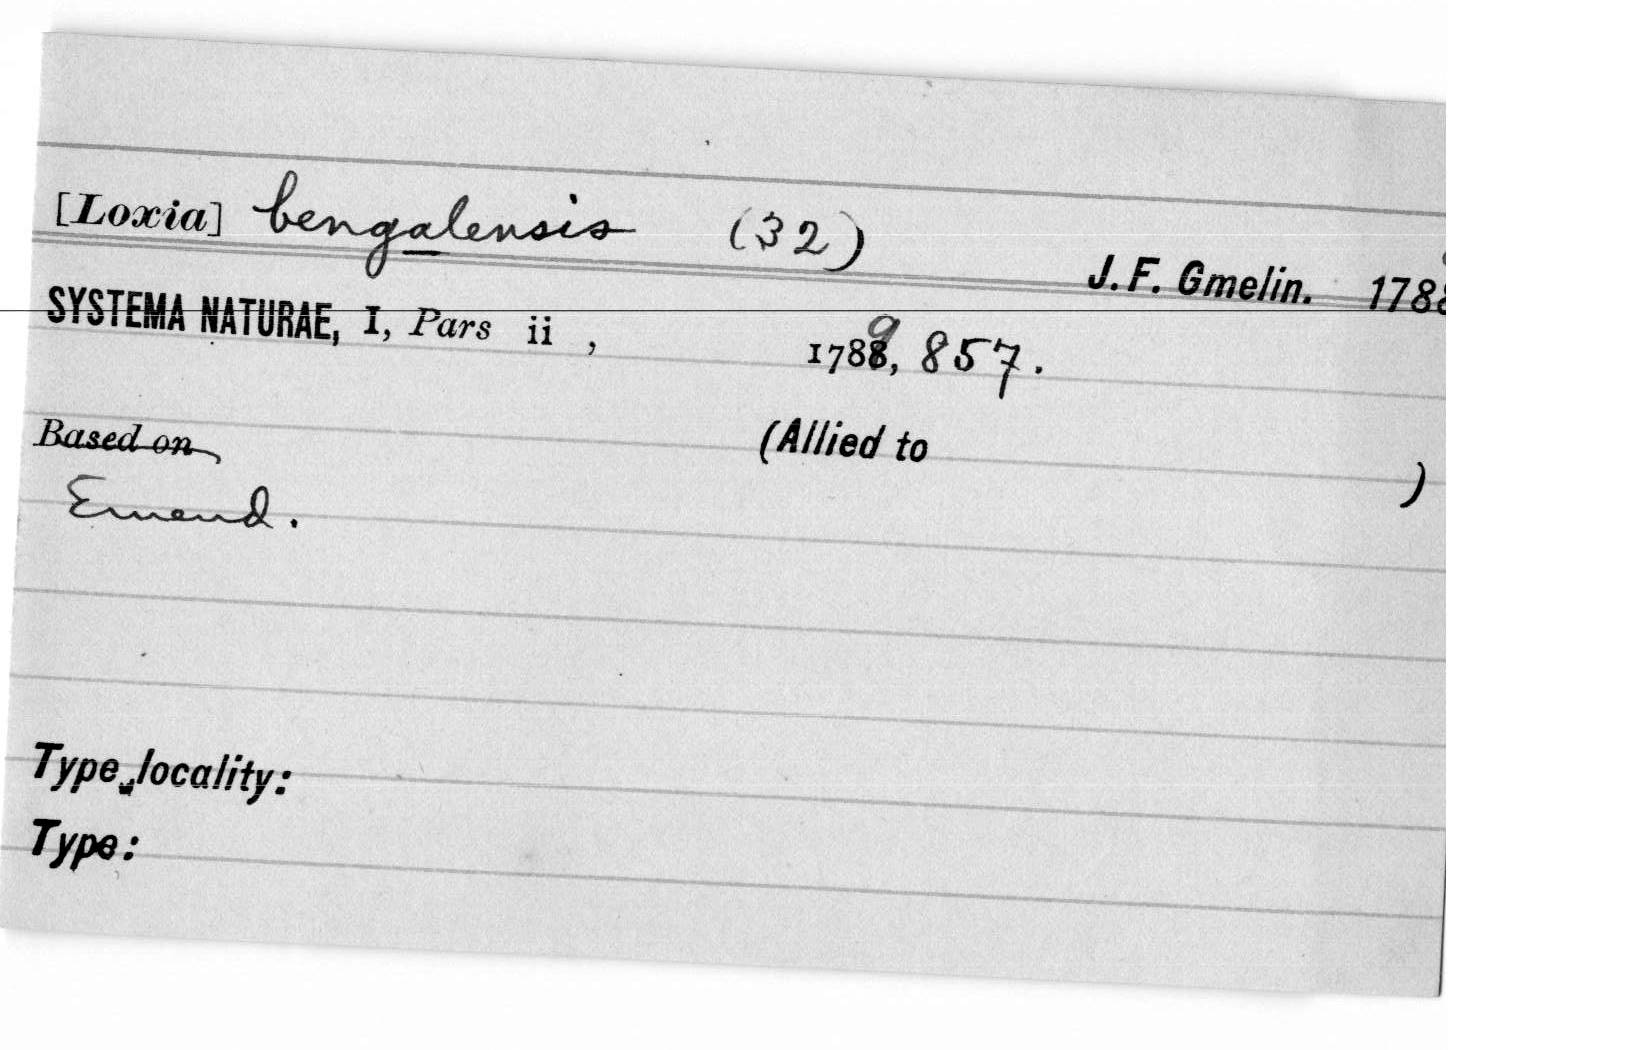 [Loxia] bengalensis (32)
J. F. Gmelin. 1788
SYSTEMA NATURAE, I, Pars ii , 1789, 857.
Based on (Allied to )
Emend.
Type locality:
Type: